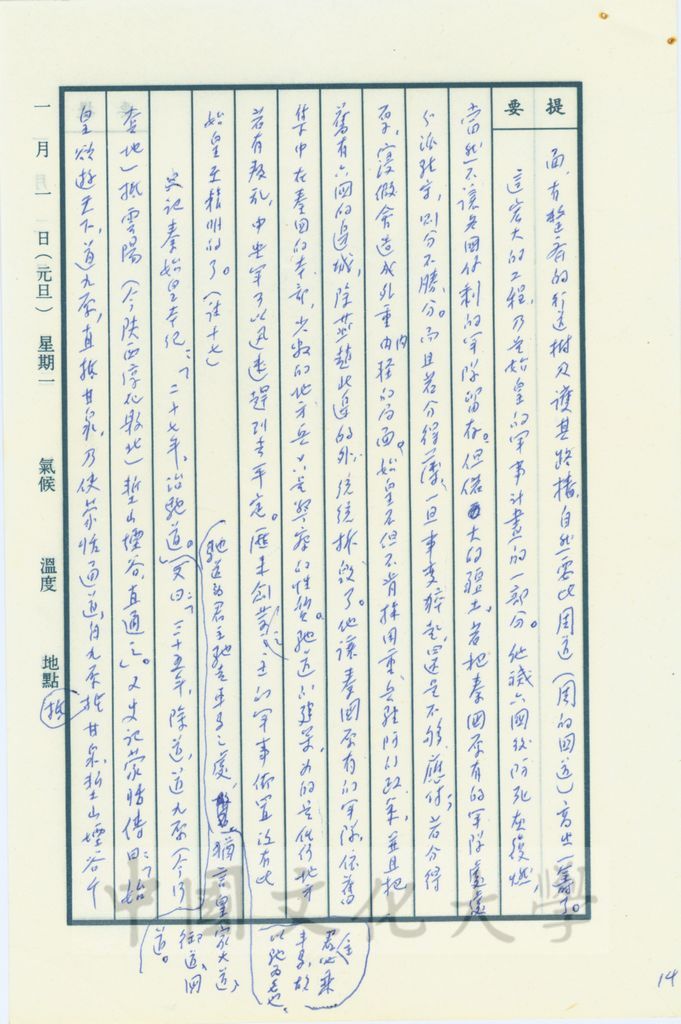 提要
面，有整齊的行道樹及護基路樁，自然要比周道（周的國道）高出一籌了。
這宏大的工程，乃是始皇的軍事計畫的一部分。他滅六國後防死灰復燃，
當然不讓各國休剩的軍隊留存。但偌大的疆土，若把秦國原有的軍隊處處
分派駐守，則分不勝分。而且若分得薄，一旦事變猝起，還是不夠應付；若分得
厚，寖假會造成外重內輕的局面。始皇不但不肯採用重兵駐防的政策，並且把
舊有六國的邊城，除燕趙北邊的外，統統拆毀了。他讓秦國原有的軍隊，依舊
集中在秦國的本部，少數的地方兵只是警察的性質。馳道的建築，為的是任何地方
若有叛亂，中央軍可以迅速趕到去平定。歷來創業之主的軍事佈置沒有比
始皇更精明的了。（註十七）
馳道為君主馳走車馬之處，猶言皇家大道，
君必乘車馬，故以馳為名也，
御道、國道。
史記秦始皇本紀：「二十七年，治馳道。」又曰：「三十五年，除道，道九原（今河
套地）抵雲陽（今陝西淳化縣北）塹山堙谷，直通之。」又史記蒙恬傳曰：「始
皇欲游天下，道九原，直抵甘泉，乃使蒙恬通道，自九原抵甘泉，塹山堙谷千
抵
一月一日（元旦） 星期一 氣候 溫度 地點
中國文化大學
14